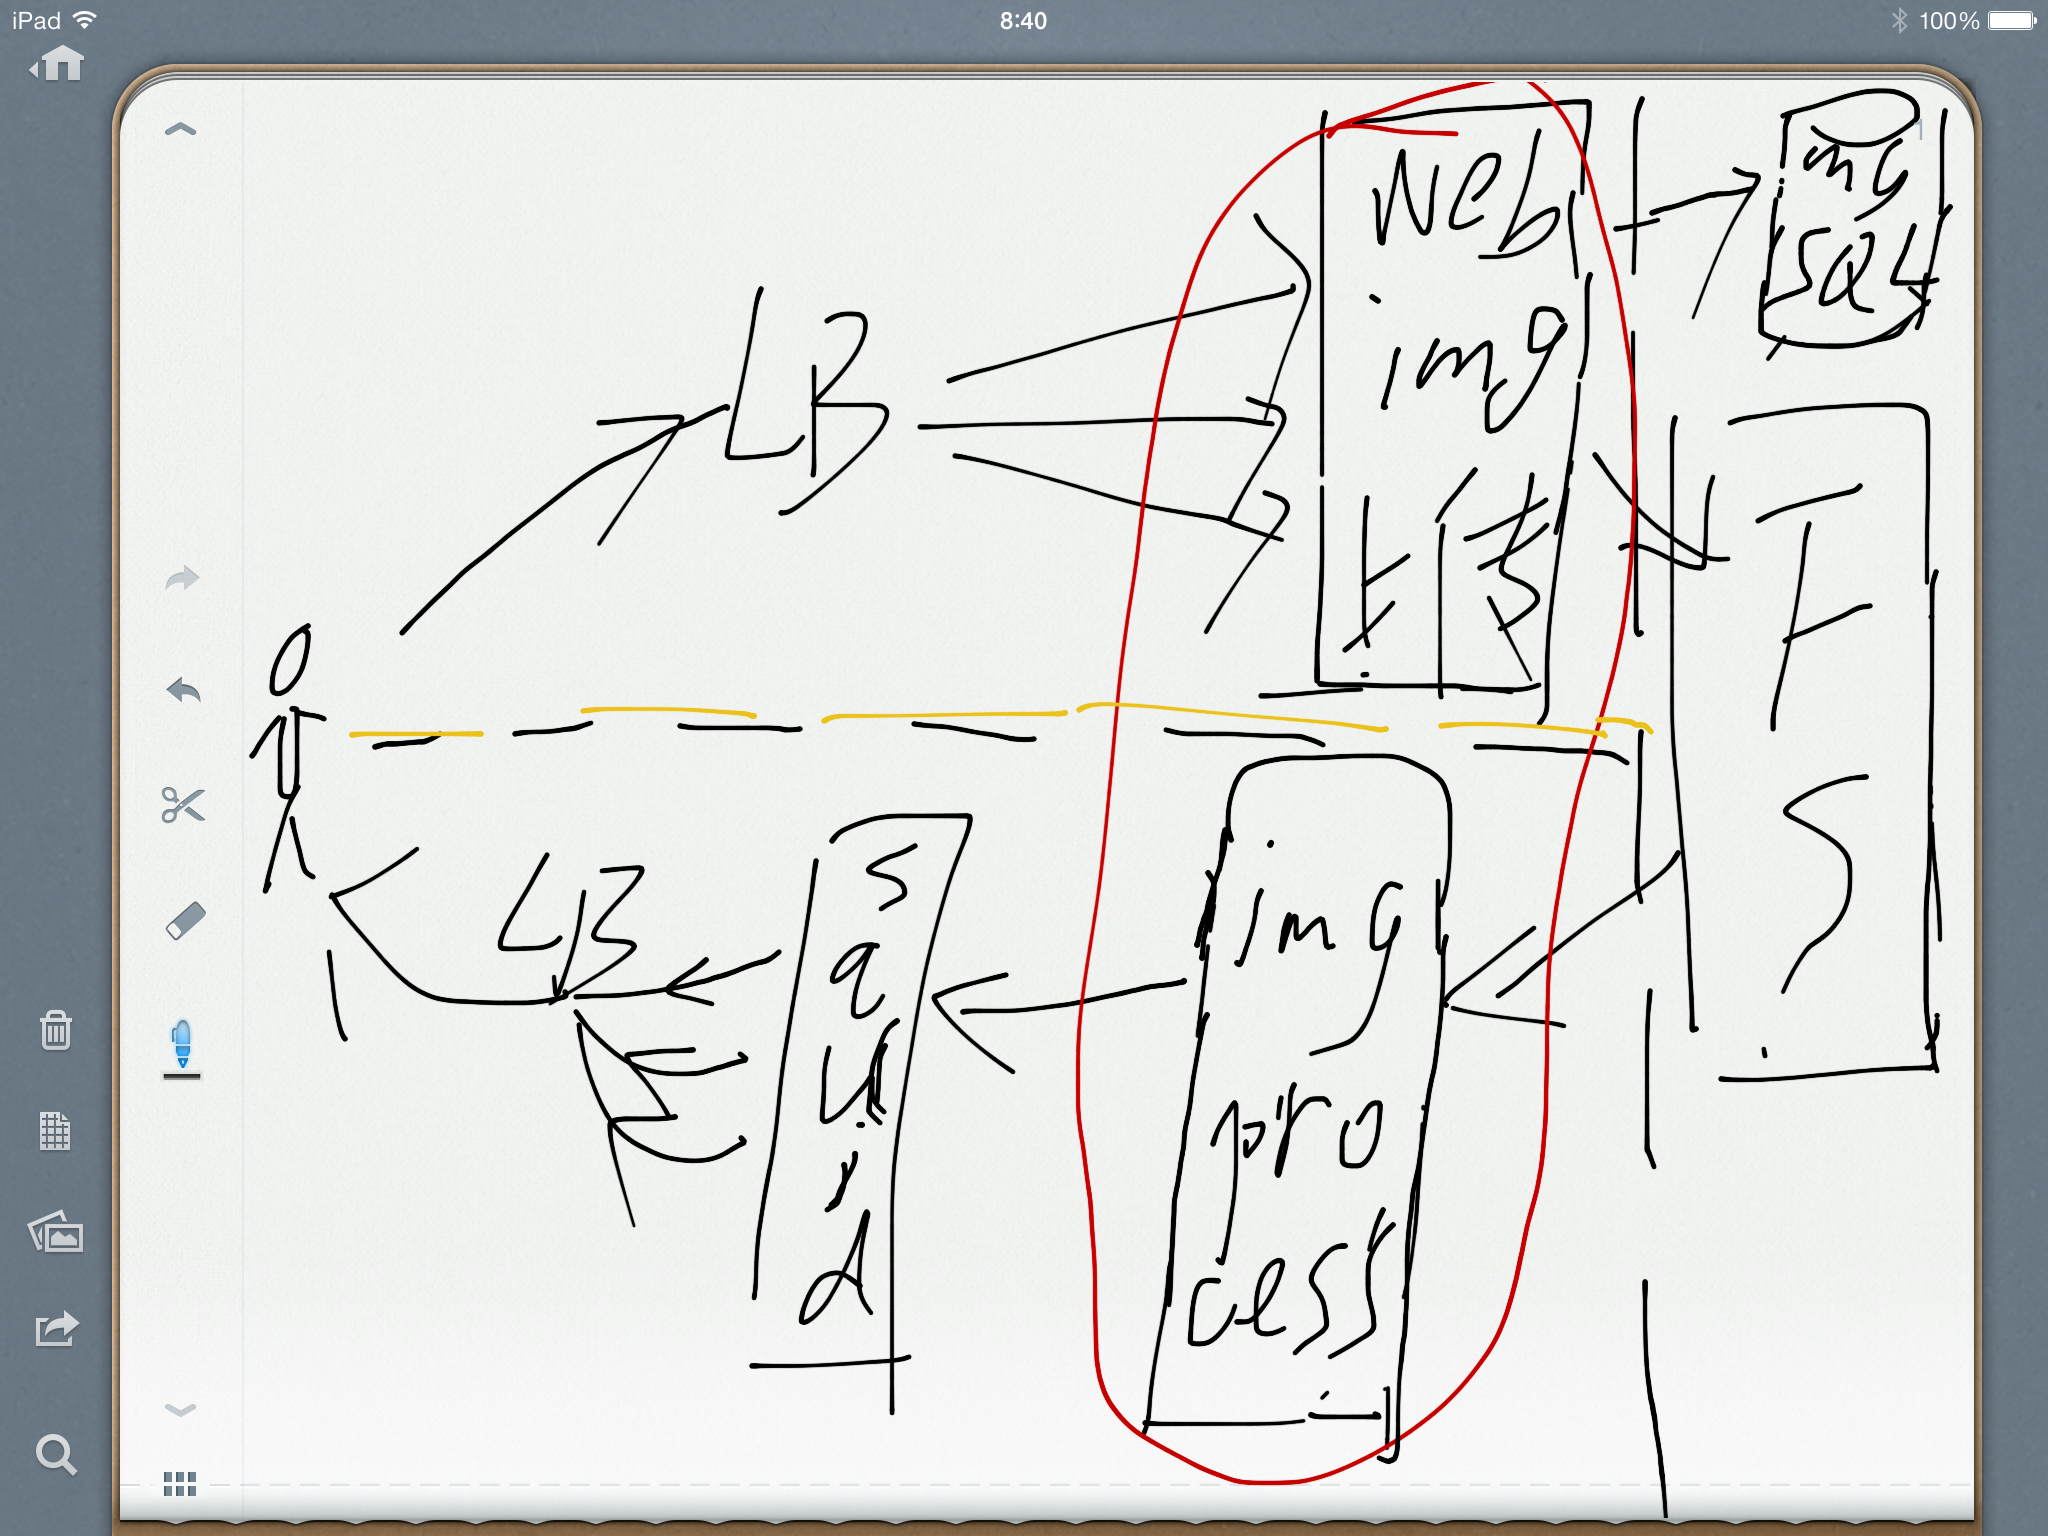 iPad
8:40
100%
1
LB
Web
img
任务
my
SQL
T
F
S
LB
squid
img
process